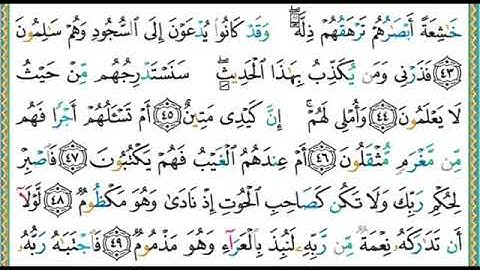 خَٰشِعَةً أَبْصَٰرُهُمْ تَرْهَقُهُمْ ذِلَّةٌ ۖ وَقَدْ كَانُوا۟ يُدْعَوْنَ إِلَى ٱلسُّجُودِ وَهُمْ سَٰلِمُونَ
٤٣ فَذَرْنِى وَمَن يُكَذِّبُ بِهَٰذَا ٱلْحَدِيثِ ۖ سَنَسْتَدْرِجُهُم مِّنْ حَيْثُ
لَا يَعْلَمُونَ ٤٤ وَأُمْلِى لَهُمْ ۚ إِنَّ كَيْدِى مَتِينٌ ٤٥ أَمْ تَسْـَٔلُهُمْ أَجْرًا فَهُم
مِّن مَّغْرَمٍ مُّثْقَلُونَ ٤٦ أَمْ عِندَهُمُ ٱلْغَيْبُ فَهُمْ يَكْتُبُونَ ٤٧ فَٱصْبِرْ
لِحُكْمِ رَبِّكَ وَلَا تَكُن كَصَاحِبِ ٱلْحُوتِ إِذْ نَادَىٰ وَهُوَ مَكْظُومٌ ٤٨ لَّوْلَآ
أَن تَدَٰرَكَهُۥ نِعْمَةٌ مِّن رَّبِّهِۦ لَنُبِذَ بِٱلْعَرَآءِ وَهُوَ مَذْمُومٌ ٤٩ فَٱجْتَبَٰهُ رَبُّهُۥ